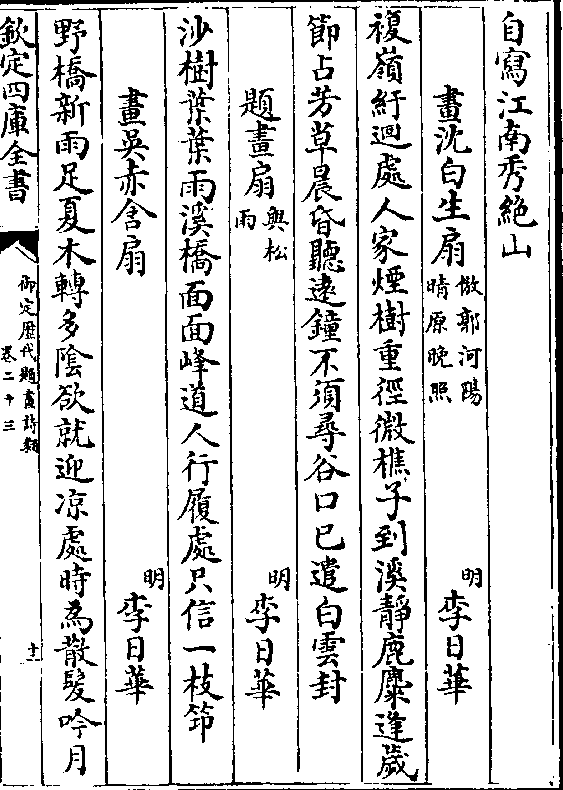 自寫江南秀絶山
畫沈白生扇倣郭河陽晴原晚照 明李日華
複嶺紆迴處人家煙樹重徑微樵子到溪靜鹿麋逢歲
節占芳草晨昏聽遠鐘不須尋谷口已遣白雲封
題畫扇與松雨 明李日華
沙樹葉葉雨溪橋面面峰道人行履處只信一枝笻
畫吳赤含扇 明李日華
野橋新雨足夏木轉多陰欲就迎凉處時為散髮吟月
欽定四庫全書
御定歴代題畫詩類
卷二十三
十二